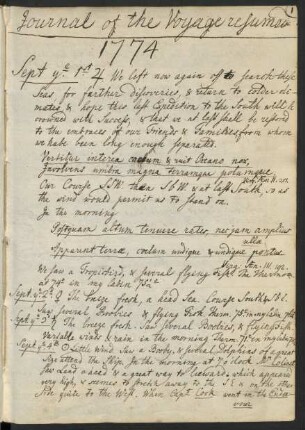 1
Journal of the Voyage resumed
1774
Sept ye. 1st ♃ We left now again off to search these
Seas for farther discoveries, & return to colder cli-
mates & hope this last Expedition to the South will be
crowned with Success, & that we at last shall be restored
to the embraces of our Friends & Families from whom
we have been long enough separated.
Vertitur interea cœlum & ruit Oceano nox,
Involvens umbra magna terramque polumque
Our Course SSW. then SbW & at last South, so as
the wind would permit us to stand on.
In the morning
Postquam altum tenuere rates, nec jam amplius
ulla
Apparent terræ, cœlum undique & undique pontus
Æn. III. 192.
We saw a Tropicbird, & several flying Fish. The Thermom.
at 79° in my Cabin 78½
Sept ye 2d ♀ The breeze fresh, a head Sea. Course South
Saw several Boobies & flying Fish. Therm. 78° in my Cabin
Sept ye 3d ♄ The breeze fresh. Saw several Boobies, & flying Fish.
Variable winds & rain in the morning Therm.
Sept ye 4th ☉ Little Wind. Saw a Booby, & several Dolphins of a great
Size attend the Ship. In the morning at 7 o clock Mr Colnet
saw Land a head & a great way to Leeward, which appeared
very high, & seemed to stretch away to the S E & on the other
Side quite to the West. When Capt Cook went in the Endea-
vour